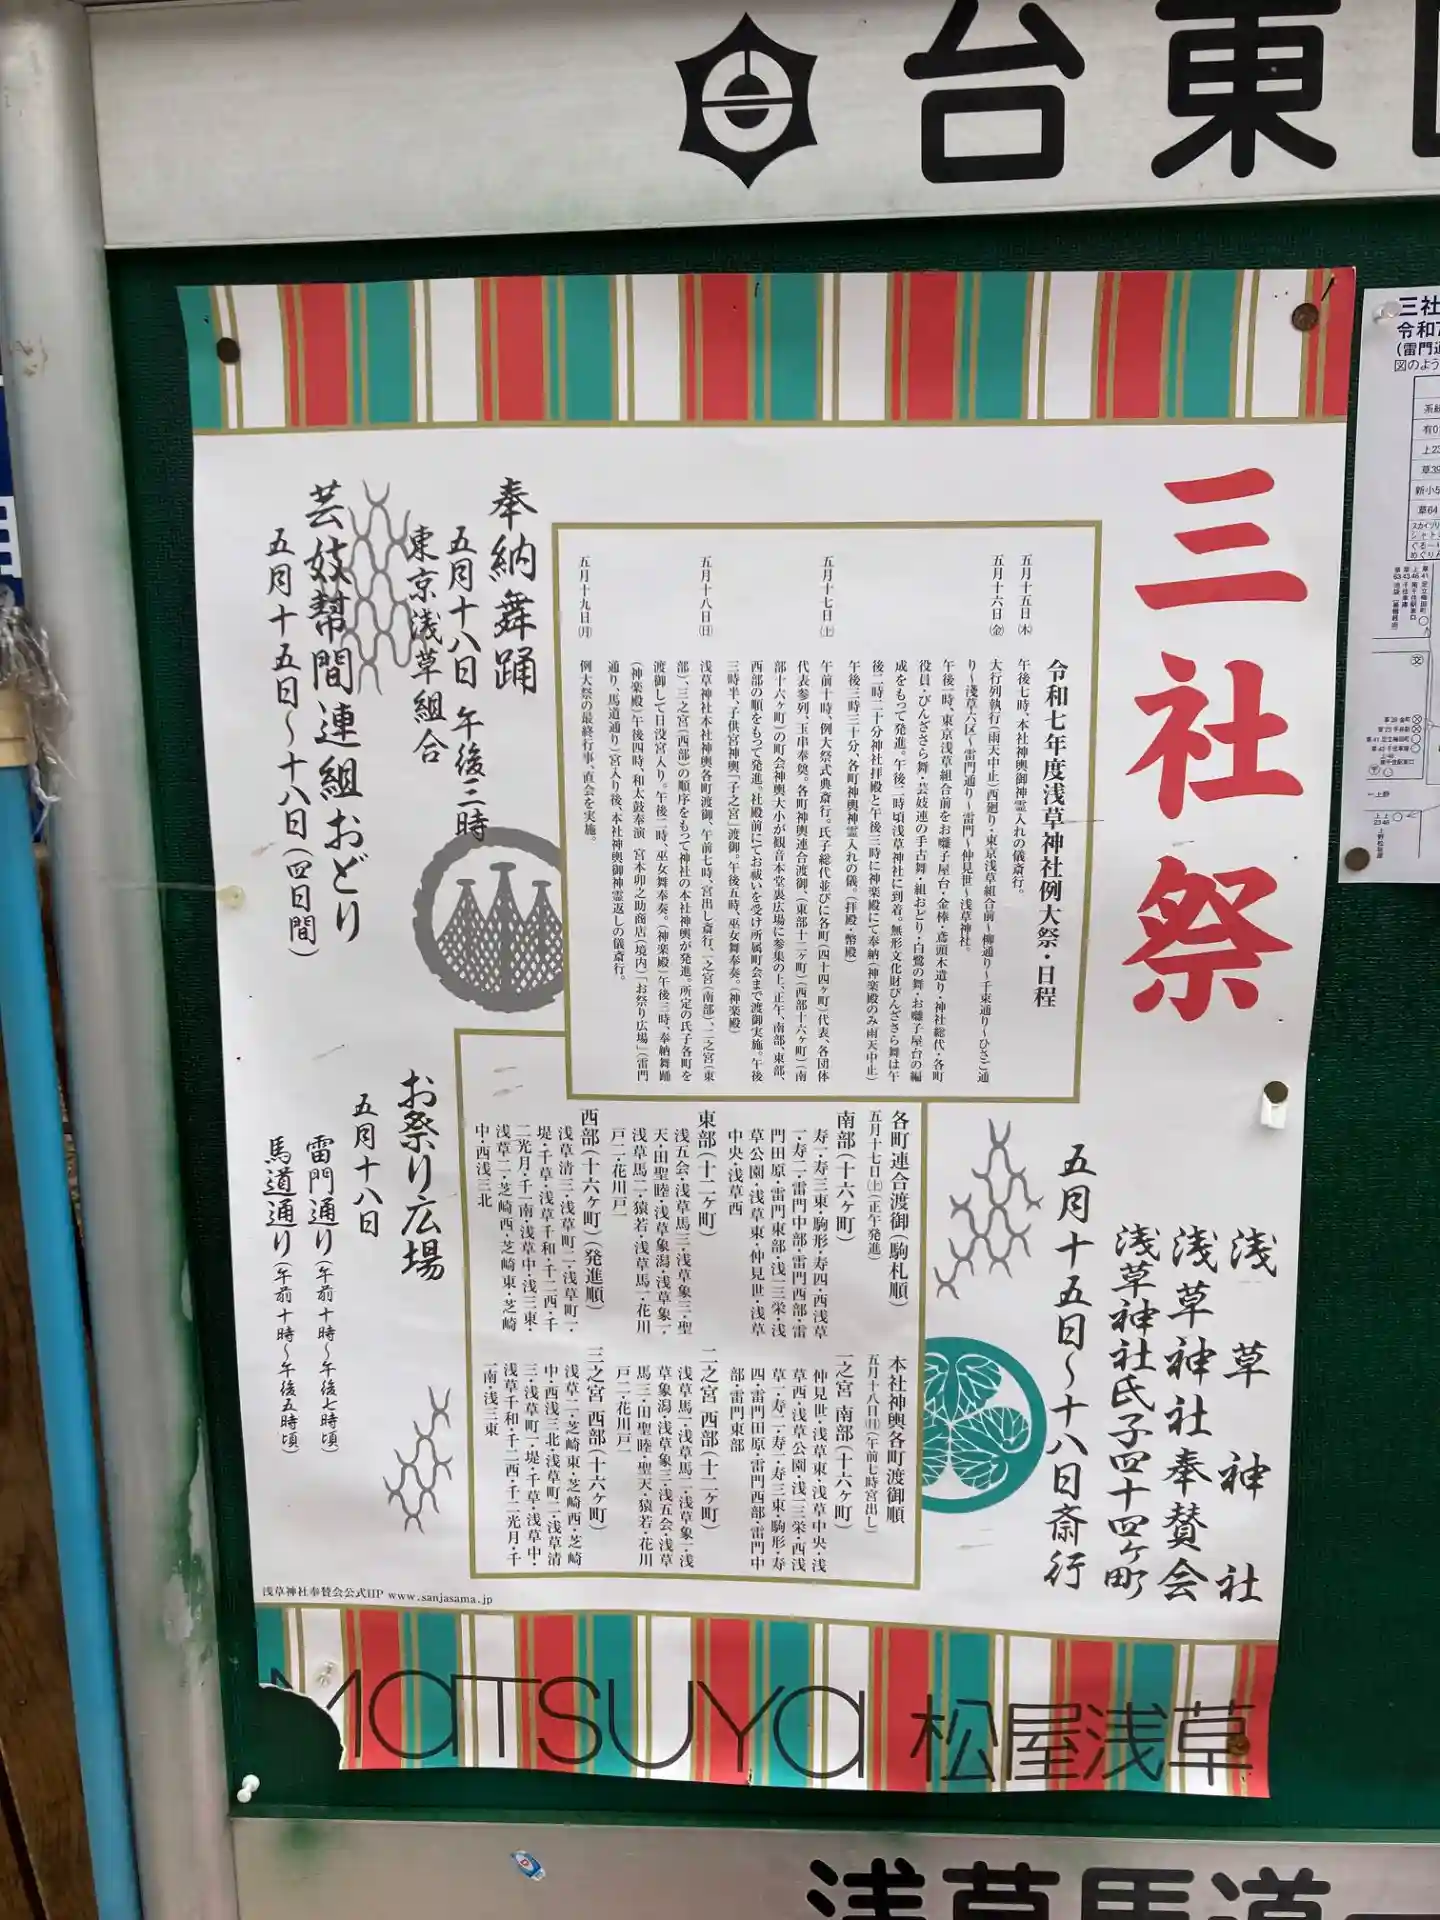 台東
三社祭
浅草神社
浅草神社奉賛会
浅草神社氏子四十四ヶ町
五月十五日～十八日斎行
令和七年度浅草神社例大祭・日程
五月十五日㈭
午後七時、本社神輿御神霊入れの儀斎行。
五月十六日㈮
大行列執行(雨天中止)西廻り・東京浅草組合前～柳通り～千束通り～ひさご通
り～浅草六区～雷門通り～雷門～仲見世～浅草神社。
午後一時、東京浅草組合前をお囃子屋台・金棒・鳶頭木遣り・神社総代・各町
役員・びんざさら舞・芸妓連の手古舞・組おどり・白鷺の舞・お囃子屋台の編
成をもって発進。午後二時頃浅草神社に到着。無形文化財びんざさら舞は午
後二時二十分神社拝殿と午後三時に神楽殿にて奉納(神楽殿のみ雨天中止)
午後三時三十分、各町神輿神霊入れの儀。(拝殿・幣殿)
五月十七日㈯
午前十時、例大祭式典斎行。氏子総代並びに各町(四十四ヶ町)代表、各団体
代表参列、玉串奉奠。各町神輿連合渡御、(東部十二ヶ町)(西部十六ヶ町)(南
部十六ヶ町)の町会神輿大小が観音本堂裏広場に参集の上、正午、南部、東部、
西部の順をもって発進。社殿前にてお祓いを受け所属町会まで渡御実施。午後
三時半、子供宮神輿「子之宮」渡御。午後五時、巫女舞奉奏。(神楽殿)
五月十八日㈰
浅草神社本社神輿各町渡御、午前七時、宮出し斎行、一之宮(南部)、二之宮(東
部)、三之宮(西部)の順序をもって神社の本社神輿が発進。所定の氏子各町を
渡御して日没宮入り。午後二時、巫女舞奉奏。(神楽殿)午後三時、奉納舞踊
(神楽殿)午後四時、和太鼓奉演 宮本卯之助商店(境内)「お祭り広場」(雷門
通り、馬道通り)宮入り後、本社神輿御神霊返しの儀斎行。
五月十九日㈪
例大祭の最終行事、直会を実施。
奉納舞踊
五月十八日 午後三時
東京浅草組合
芸妓幇間連組おどり
五月十五日～十八日(四日間)
各町連合渡御(駒札順)
五月十七日㈯(正午発進)
南部(十六ヶ町)
寿一・寿三東・駒形・寿四・西浅草
一・寿二・雷門中部・雷門西部・雷
門田原・雷門東部・浅一三栄・浅
草公園・浅草東・仲見世・浅草
中央・浅草西
東部(十二ヶ町)
浅五会・浅草馬三・浅草象三・聖
天・田聖睦・浅草象潟・浅草象一・
浅草馬二・猿若・浅草馬一・花川
戸二・花川戸一
西部(十六ヶ町)(発進順)
浅草清三・浅草町二・浅草町一・
堤・千草・浅草千和・千二西・千
二光月・千一南・浅草中・浅三東・
浅草二・芝崎西・芝崎東・芝崎
中・西浅三北
本社神輿各町渡御順
五月十八日㈰(午前七時宮出し)
一之宮 南部(十六ヶ町)
仲見世・浅草東・浅草中央・浅
草西・浅草公園・浅一三栄・西浅
草一・寿二・寿一・寿三東・駒形・寿
四・雷門田原・雷門西部・雷門中
部・雷門東部
二之宮 西部(十二ヶ町)
浅草馬一・浅草馬二・浅草象一・浅
草象潟・浅草象三・浅五会・浅草
馬三・田聖睦・聖天・猿若・花川
戸二・花川戸一
三之宮 西部(十六ヶ町)
浅草二・芝崎東・芝崎西・芝崎
中・西浅三北・浅草町二・浅草清
三・浅草町一・堤・千草・浅草中・
浅草千和・千二西・千二光月・千
一南・浅三東
お祭り広場
五月十八日
雷門通り(午前十時～午後七時頃)
馬道通り(午前十時～午後五時頃)
浅草神社奉賛会公式HP www.sanjasama.jp
MATSUYA 松屋浅草
三社
令和7
(雷門通
図のよう
浅草馬道一